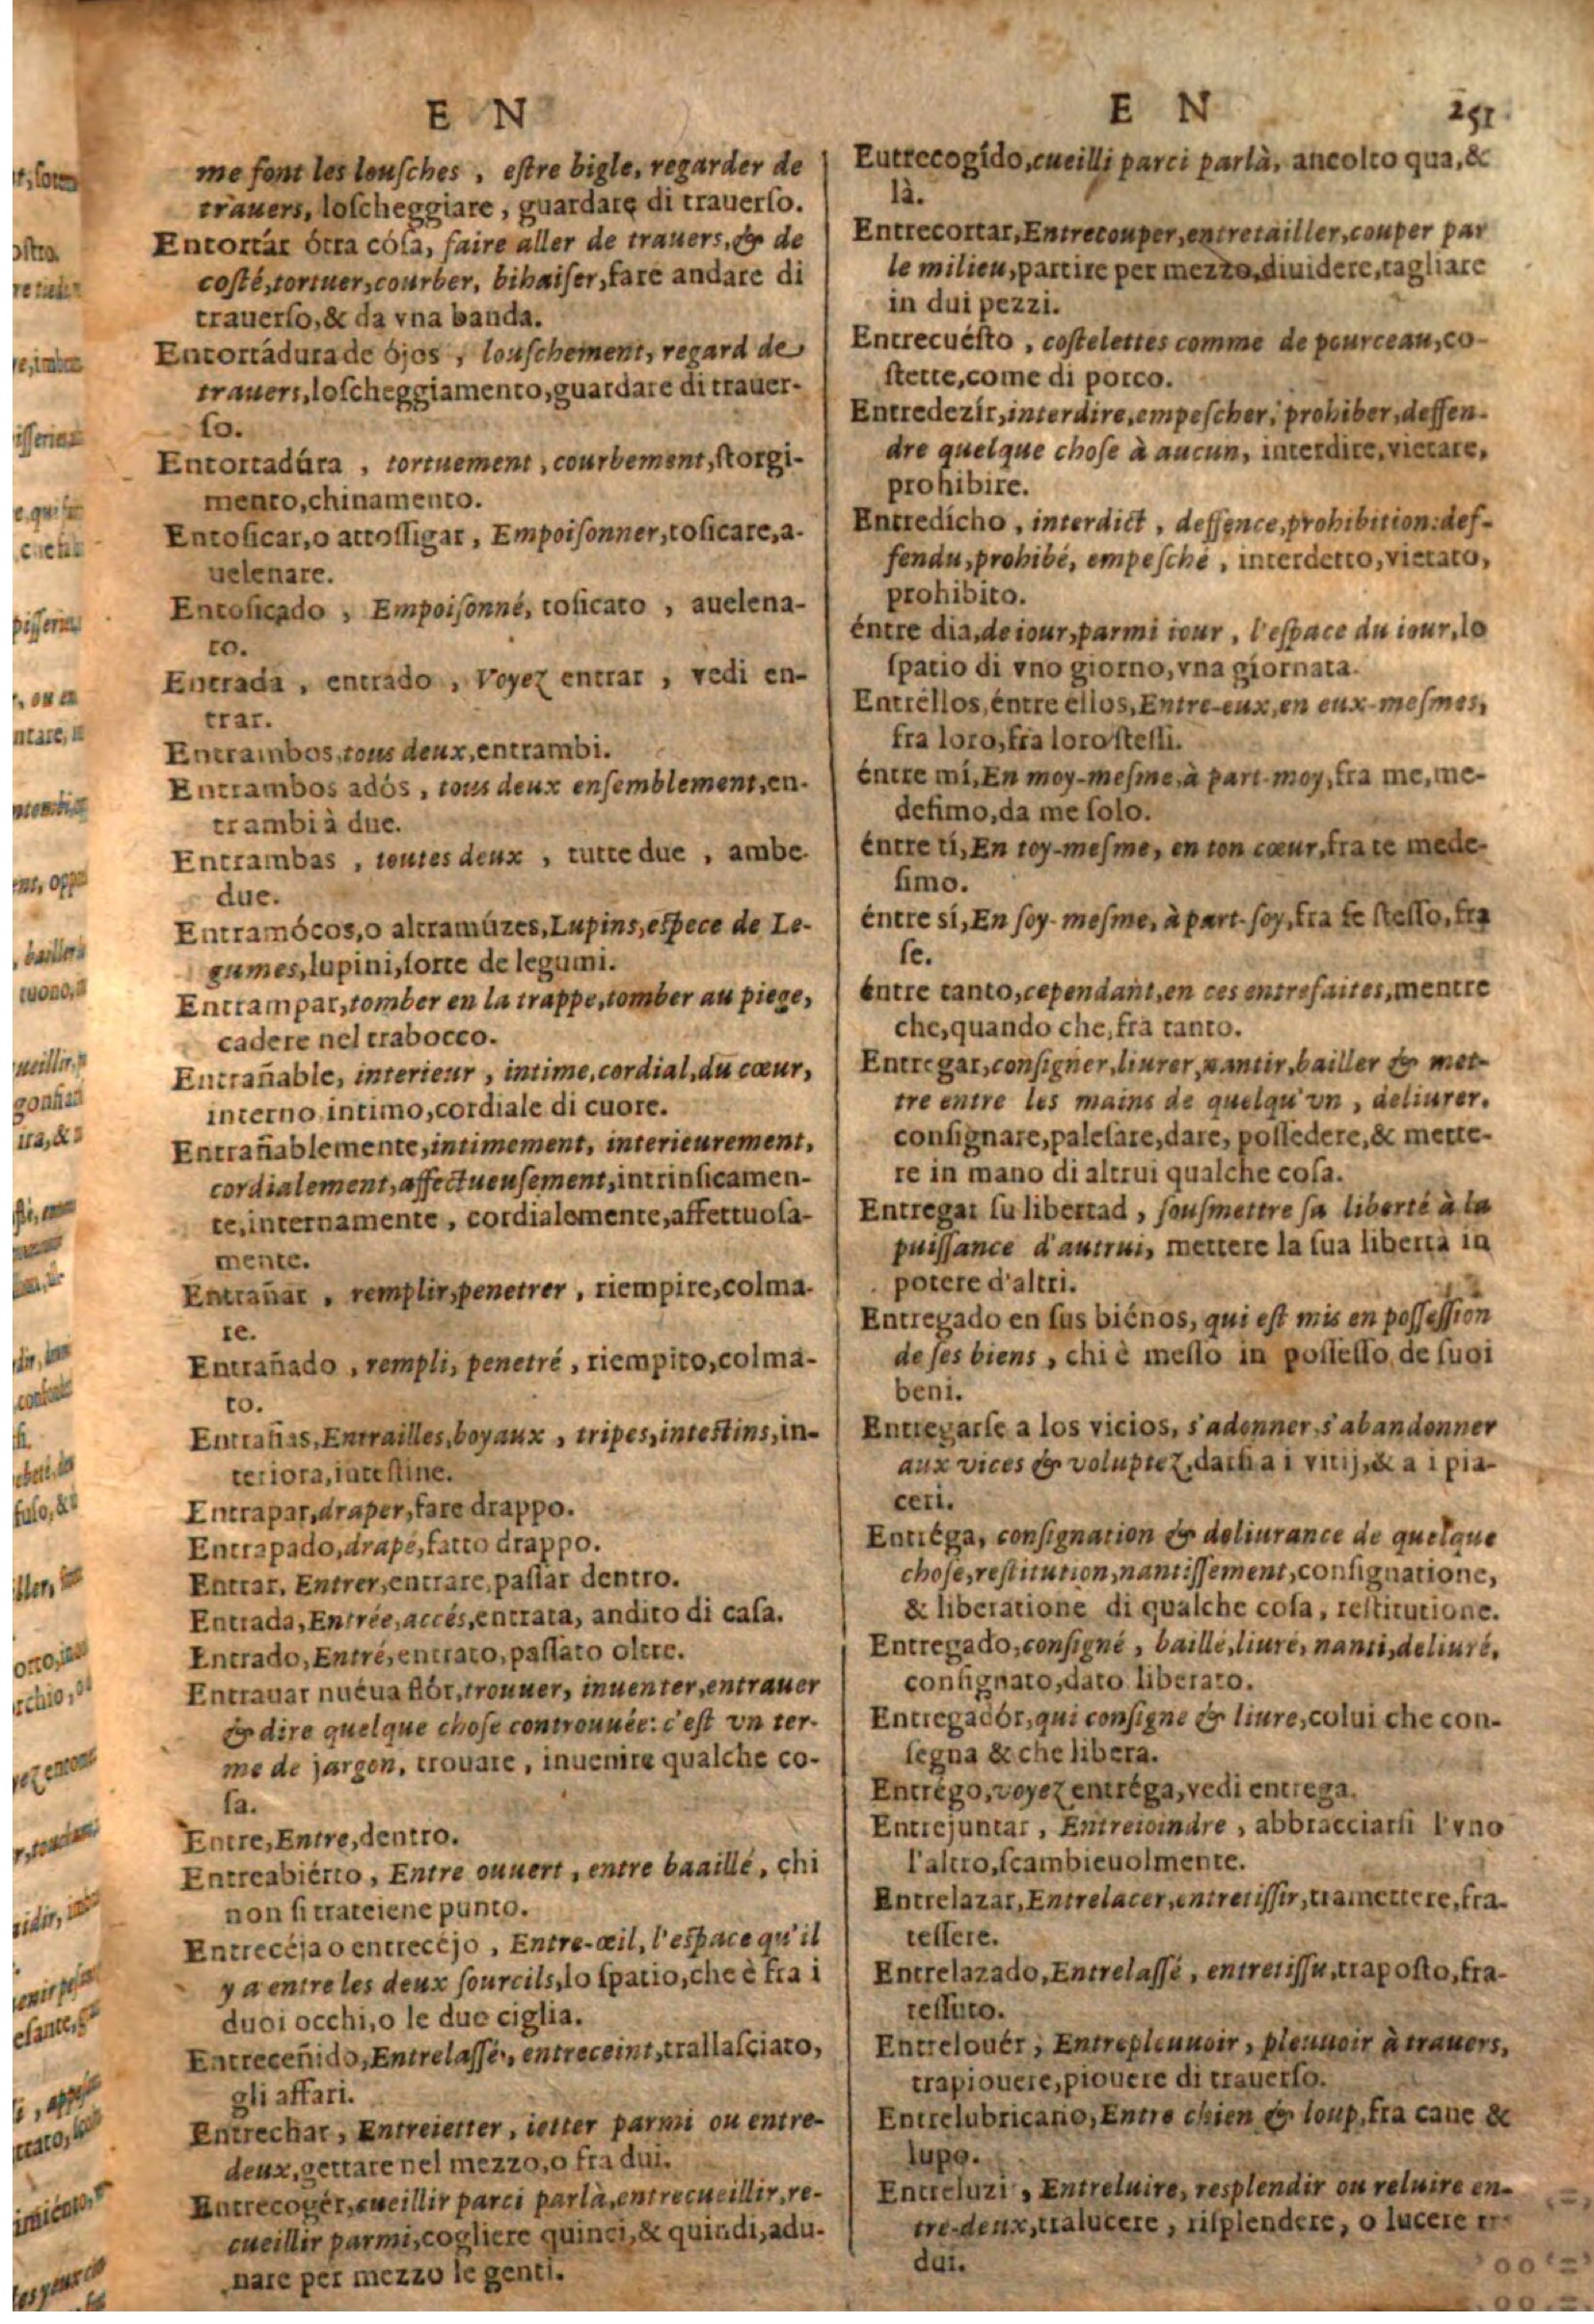 E N
me font les lousches, estre bigle, regarder de
trauers, loscheggiare, guardare di trauerso.
Entortár ótra cósa, faire aller de trauers, & de
costé, tortuer, courber, bihaiser, fare andare di
trauerso, & da vna banda.
Entortádura de ójos, louschement, regard de
trauers, loscheggiamento, guardare di trauer-
so.
Entortadúra, tortuement, courbement, storgi-
mento, chinamento.
Entosicar, o attossigar, Empoisonner, tosicare, a-
uelenare.
Entosicado, Empoisonné, tosicato, auelena-
to.
Entrada, entrado, Voyez entrar, vedi en-
trar.
Entrambos, tous deux, entrambi.
Entrambos adós, tous deux ensemblement, en-
trambi à due.
Entrambas, toutes deux, tutte due, ambe-
due.
Entramócos, o altramúzes, Lupins, espece de Le-
gumes, lupini, sorte de legumi.
Entrampar, tomber en la trappe, tomber au piege,
cadere nel trabocco.
Entrañable, interieur, intime, cordial, du cœur,
interno intimo, cordiale di cuore.
Entrañablemente, intimement, interieurement,
cordialement, affectueusement, intrinsicamen-
te, internamente, cordialemente, affettuosa-
mente.
Entrañar, remplir, penetrer, riempire, colma-
re.
Entrañado, rempli, penetré, riempito, colma-
to.
Entrañas, Entrailles, boyaux, tripes, intestins, in-
teriora, intestine.
Entrapar, draper, fare drappo.
Entrapado, drapé, fatto drappo.
Entrar, Entrer, entrare, passar dentro.
Entrada, Entrée, accés, entrata, andito di casa.
Entrado, Entré, entrato, passato oltre.
Entrauar nuéua flór, trouuer, inuenter, entrauer
& dire quelque chose controuuée: c'est vn ter-
me de jargon, trouare, inuenire qualche co-
sa.
Entre, Entre, dentro.
Entreabiérto, Entre ouuert, entre baaillé, chi
non si trateiene punto.
Entrecéja o entrecéjo, Entre-œil, l'espace qu'il
y a entre les deux sourcils, lo spatio, che è fra i
duoi occhi, o le due ciglia.
Entreceñido, Entrelassé, entreceint, trallasciato,
gli affari.
Entrechar, Entreietter, ietter parmi ou entre-
deux, gettare nel mezzo, o fra dui.
Entrecogér, cueillir parci parlà, entrecueillir, re-
cueillir parmi, cogliere quinci, & quindi, adu-
nare per mezzo le genti.
E N 251
Eutrecogído, cueilli parci parlà, ancolto qua, &
là.
Entrecortar, Entrecouper, entretailler, couper par
le milieu, partire per mezzo, diuidere, tagliare
in dui pezzi.
Entrecuésto, costelettes comme de pourceau, co-
stette, come di porco.
Entredezír, interdire, empescher, prohiber, deffen-
dre quelque chose à aucun, interdire, vietare,
prohibire.
Entredicho, interdict, deffence, prohibition: def-
fendu, prohibé, empesché, interdetto, vietato,
prohibito.
éntre dia, de iour, parmi iour, l'espace du iour, lo
spatio di vno giorno, vna giornata.
Entréllos, éntre ellos, Entre-eux, en eux-mesmes,
fra loro, fra loro stessi.
éntre mí, En moy-mesme, à part-moy, fra me, me-
desimo, da me solo.
éntre tí, En toy-mesme, en ton cœur, fra te mede-
simo.
éntre sí, En soy-mesme, à part-soy, fra se stesso, fra
se.
éntre tanto, cependant, en ces entrefaites, mentre
che, quando che, fra tanto.
Entregar, consigner, liurer, nantir, bailler & met-
tre entre les mains de quelqu'vn, deliurer.
consignare, palesare, dare, possedere, & mette-
re in mano di altrui qualche cosa.
Entregar su libertad, sousmettre sa liberté à la
puissance d'autrui, mettere la sua libertà in
potere d'altri.
Entregado en sus biénos, qui est mis en possession
de ses biens, chi è messo in possesso de suoi
beni.
Entregarse a los vicios, s'adonner, s'abandonner
aux vices & voluptez, darsi a i vitij, & a i pia-
ceri.
Entréga, consignation & deliurance de quelque
chose, restitution, nantissement, consignatione,
& liberatione di qualche cosa, restitutione.
Entregado, consigné, baillé, liuré, nanti, deliuré,
consignato, dato liberato.
Entregadór, qui consigne & liure, colui che con-
segna & che libera.
Entrégo, voyez entréga, vedi entrega.
Entrejuntar, Entreioindre, abbracciarsi l'vno
l'altro, scambieuolmente.
Entrelazar, Entrelacer, entretissir, tramettere, fra-
tessere.
Entrelazado, Entrelassé, entretissu, traposto, fra-
tessuto.
Entrelouér, Entrepleuuoir, pleuuoir à trauers,
trapiouere, piouere di trauerso.
Entrelubricano, Entre chien & loup, fra cane &
lupo.
Entreluzi, Entreluire, resplendir ou reluire en-
tre-deux, tralucere, risplendere, o lucere
dui.